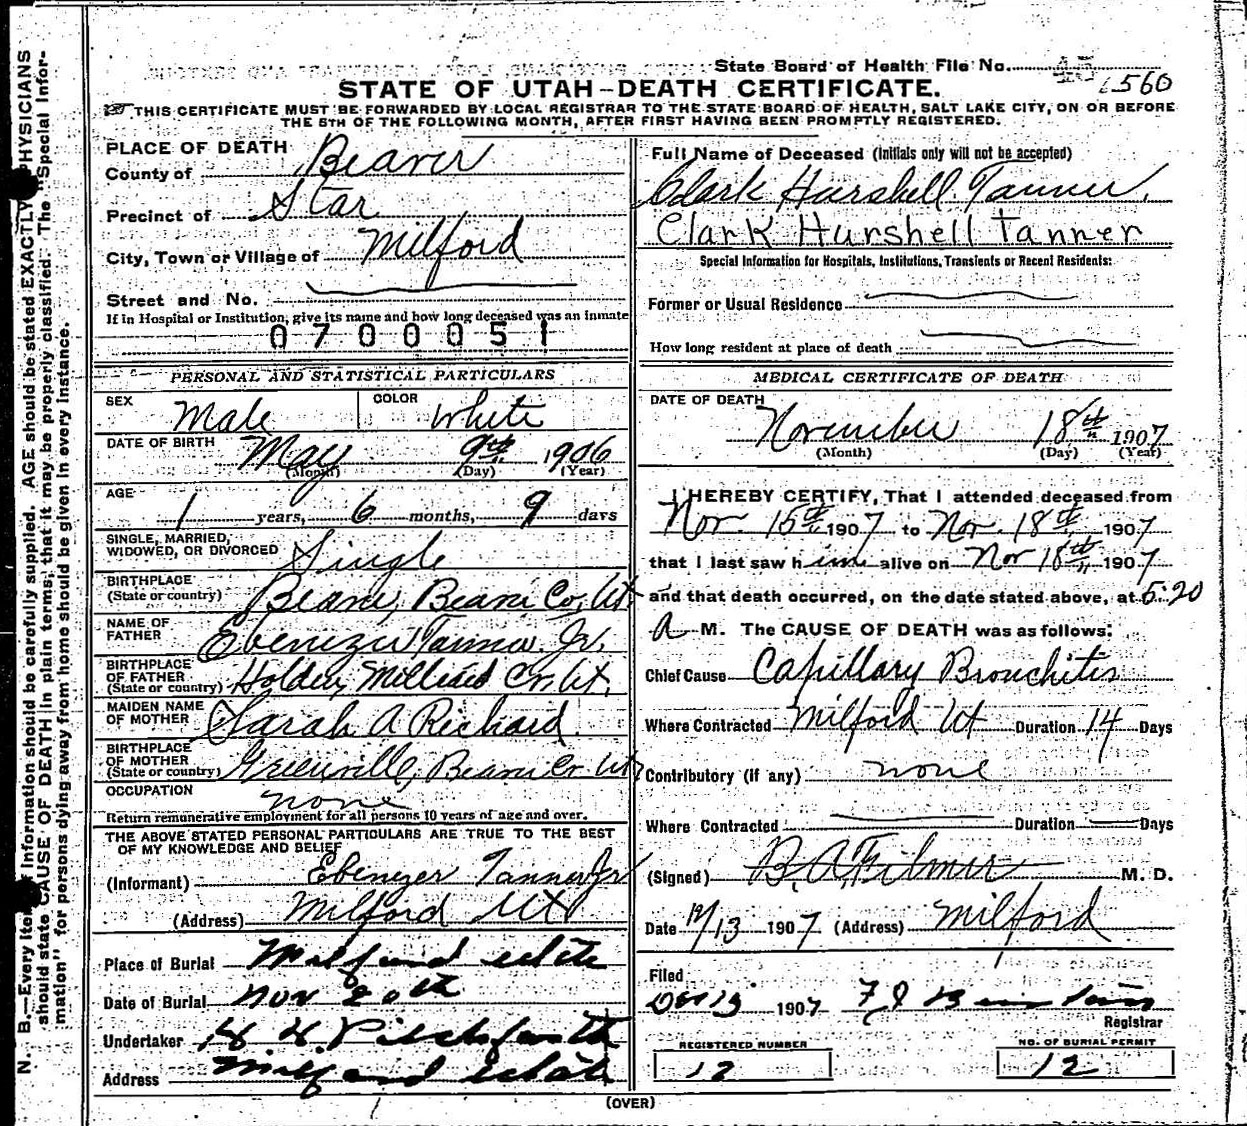 N. B.—Every item of information should be carefully supplied. AGE should be stated EXACTLY. PHYSICIANS
should state CAUSE OF DEATH in plain terms, that it may be properly classified. The "Special Infor-
mation" for persons dying away from home should be given in every instance.
State Board of Health File No. 560
STATE OF UTAH-DEATH CERTIFICATE.
THIS CERTIFICATE MUST BE FORWARDED BY LOCAL REGISTRAR TO THE STATE BOARD OF HEALTH, SALT LAKE CITY, ON OR BEFORE
THE 5TH OF THE FOLLOWING MONTH, AFTER FIRST HAVING BEEN PROMPTLY REGISTERED.
PLACE OF DEATH
County of Beaver
Precinct of Star
City, Town or Village of Milford
Street and No.
If in Hospital or Institution, give its name and how long deceased was an inmate
0700051
PERSONAL AND STATISTICAL PARTICULARS
SEX Male COLOR White
DATE OF BIRTH May 9th 1906
(Month) (Day) (Year)
AGE 1 years, 6 months, 9 days
SINGLE, MARRIED,
WIDOWED, OR DIVORCED Single
BIRTHPLACE
(State or country) Beaver, Beaver Co, Ut
NAME OF
FATHER Ebenezer Tanner Jr.
BIRTHPLACE
OF FATHER
(State or country) Holden, Millard Co. Ut.
MAIDEN NAME
OF MOTHER Sarah A Richard
BIRTHPLACE
OF MOTHER
(State or country) Greenville, Beaver Co Ut
OCCUPATION none
Return remunerative employment for all persons 10 years of age and over.
THE ABOVE STATED PERSONAL PARTICULARS ARE TRUE TO THE BEST
OF MY KNOWLEDGE AND BELIEF
(Informant) Ebenezer Tanner Jr
(Address) Milford Ut
Place of Burial Milford Utah
Date of Burial Nov 20th
Undertaker
Address Milford Utah
Full Name of Deceased (Initials only will not be accepted)
Clark Hurshell Tanner.
Clark Hurshell Tanner
Special Information for Hospitals, Institutions, Transients or Recent Residents:
Former or Usual Residence
How long resident at place of death
MEDICAL CERTIFICATE OF DEATH
DATE OF DEATH
November 18th 1907
(Month) (Day) (Year)
I HEREBY CERTIFY, That I attended deceased from
Nov. 15th, 1907 to Nov. 18th, 1907
that I last saw him alive on Nov 18th, 1907
and that death occurred, on the date stated above, at 5:20
A M. The CAUSE OF DEATH was as follows:
Chief Cause Capillary Bronchitis
Where Contracted Milford Ut Duration 14 Days
Contributory (if any) none
Where Contracted Duration Days
(Signed) M. D.
Date 12/13 1907 (Address) Milford
Filed
Dec 13 1907
Registrar
REGISTERED NUMBER
12
NO. OF BURIAL PERMIT
12
(OVER)